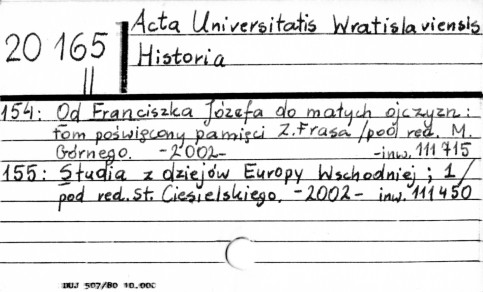 Acta Universitatis Wratislaviensis
20 165
Historia
154: Od Franciszka Józefa do małych ojczyzn:
tom poświęcony pamięci Z. Frasa / pod red. M.
Górnego. -2002- -inw. 111 715
155: Studia z dziejów Europy Wschodniej ; 1 /
pod red. St. Ciesielskiego. -2002- inw. 111450
DUJ 507/80 10.000